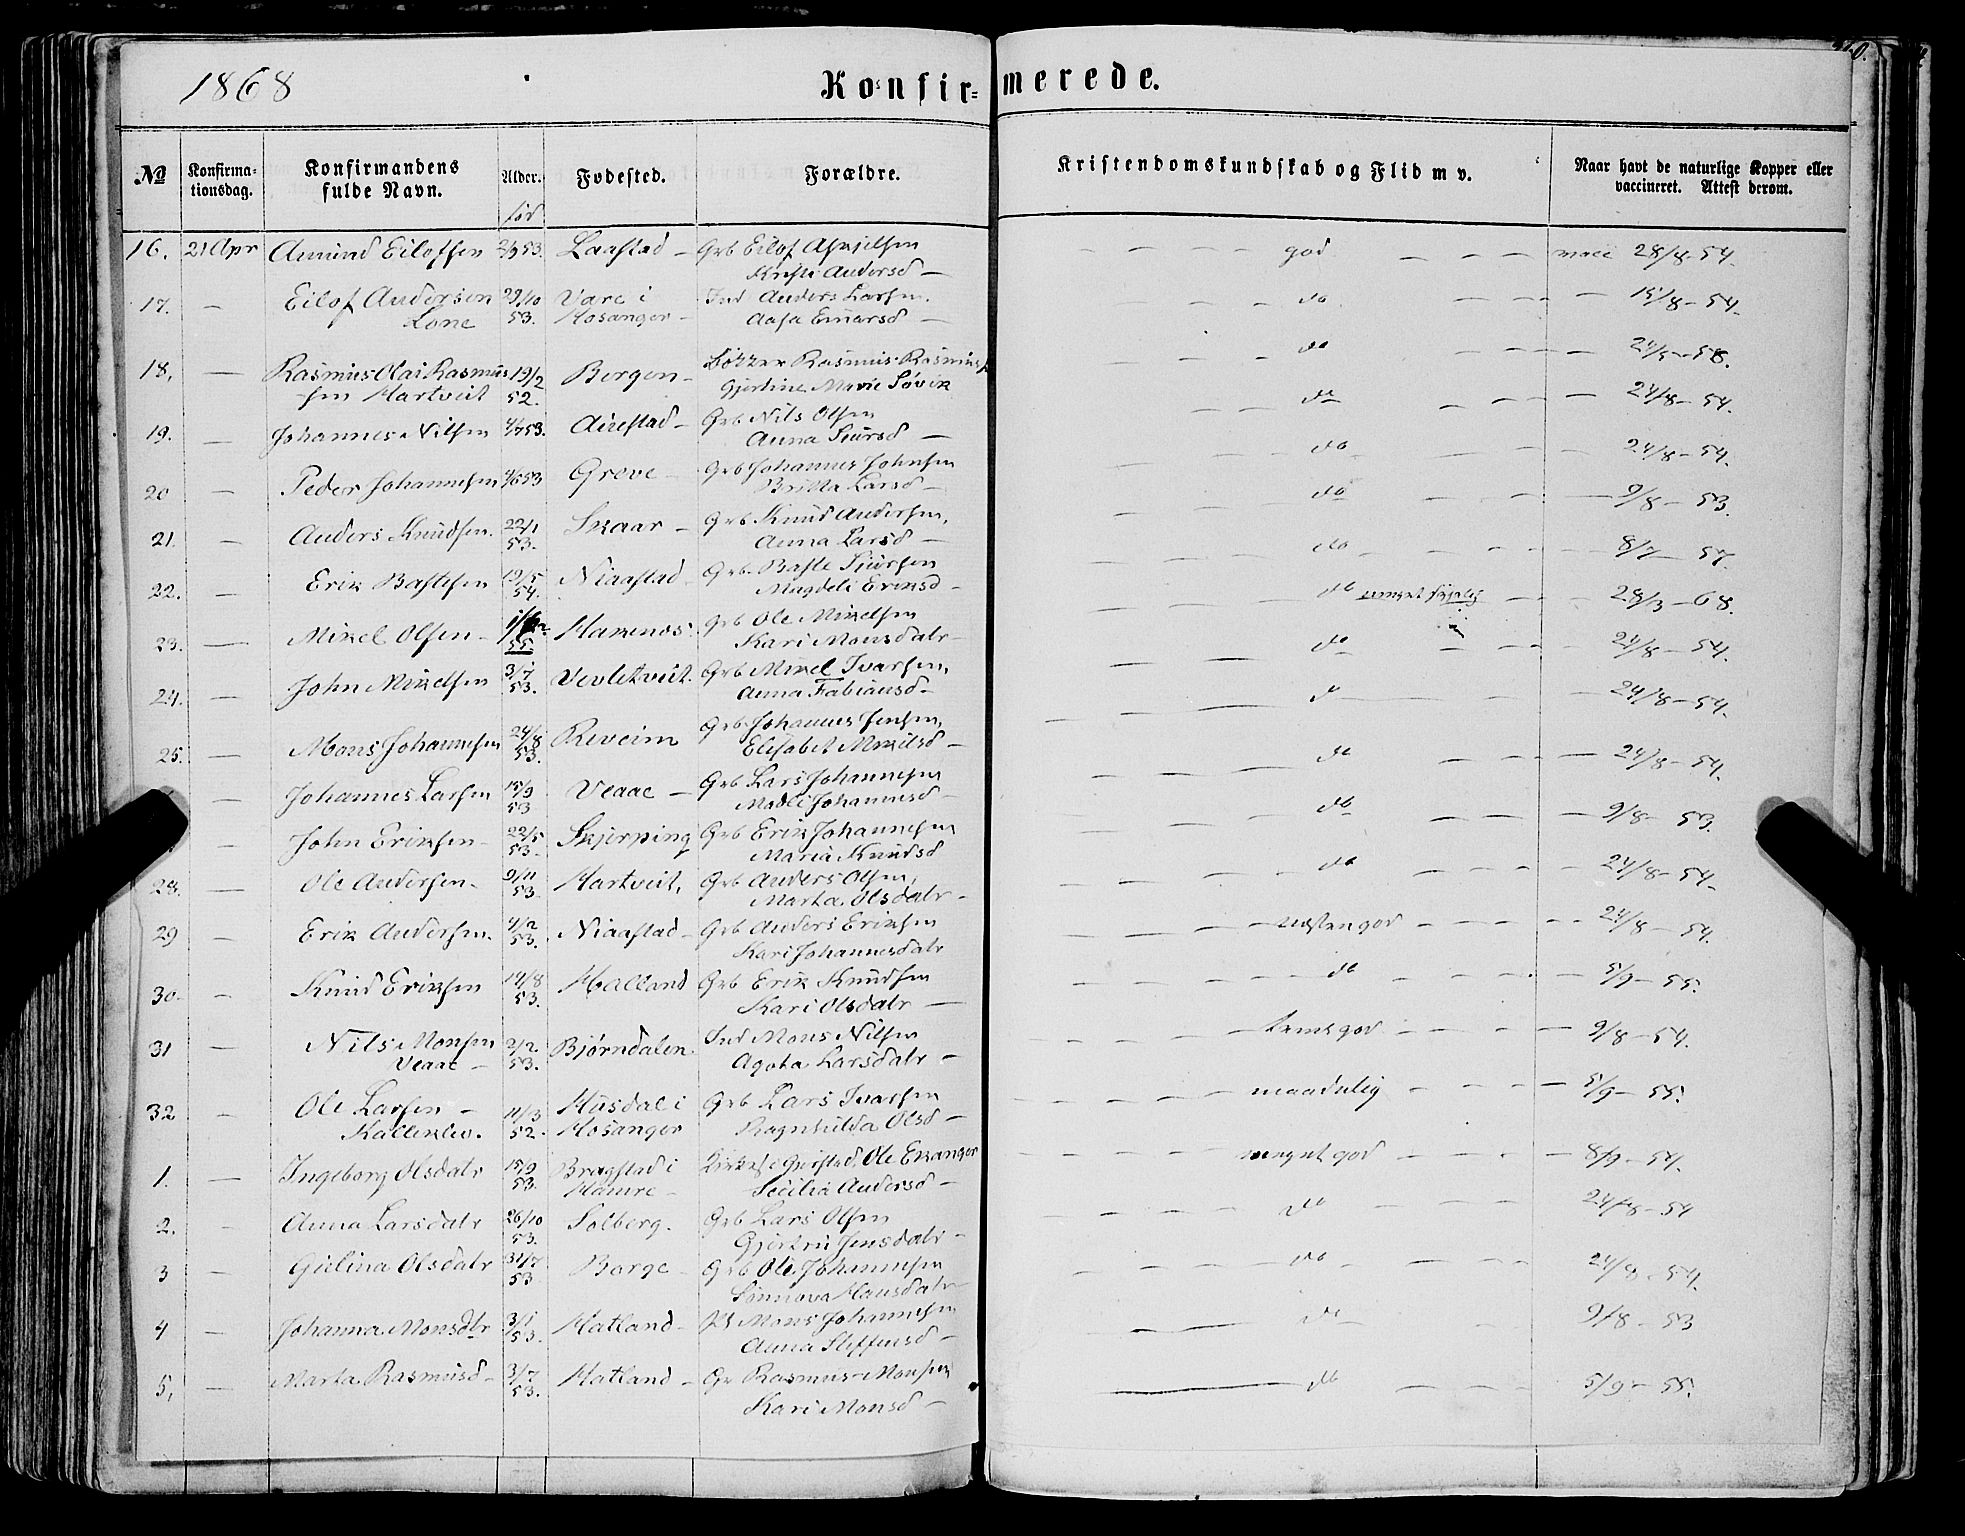 1868
Konfir=merede.
№ Konfirma-tionsdag. Konfirmandens fulde Navn. Alder. Fødested. Forældre. Kristendomskundskab og Flid m v. Naar havt de naturlige Kopper eller vaccineret. Attest derom.
fød
16. 21 Apr Amund Eilofsen 2/9 53. Laastad - Grb Eilof Askjelsen god vacc 28/8-54.
Kristi Andersd -
17. - Eilof Andersen 29/10 Vare i Ind Anders Larsen. do 15/8-54.
Lone 53. Hosanger - Aasa Einarsd -
18. - Rasmus Olai Rasmus 19/2 Bergen - Rasmus Rasmuss do
sen Hartveit 52. Gjertine Marie Søvik
19. - Johannes Nilsen 4/7 53. Airestad - Grb Nils Olsen do 24/8-54.
Anna Sjursd -
20 - Peder Johannesen 4/6 53 Greve - Grb Johannes Johnsen do 24/8-54.
Britta Larsd -
21. - Anders Knudsen. 22/1 Skaar - Grb Knud Andersen, do 9/8-53.
53. Anna Larsd -
22. - Erik Bastesen 19/5 Niaastad - Grb. Baste Sjursen do 8/7-57.
54. Magdeli Eriksd -
23. - Mikel Olsen - Hamnos. Grb Ole Mikelsen do 28/3-68.
55. Kari Monsdatr -
24. - John Mikelsen 3/7 Vevletveit. Grb Mikel Ivarsen, do 24/8-54.
53. Anna Fabiansd -
25. - Mons Johannesen 24/8 Reveim Grb. Johannes Jensen, do 24/8-54.
53. Elisabet Mikelsd -
- Johannes Larsen 15/9 Veaae - Grb Lars Johannesen do 24/8-54.
53 Madli Johannesd -
- John Eriksen - 22/5 Skjerping Grb Erik Johannesen do 9/8-53.
53 - Maria Knudsd
28. - Ole Andersen - 9/11 Hartveit, Grb Anders Olsen, do 24/8-54.
53 Marta Olsdatr -
29 - Erik Andersen. 4/2 Niaastad - Grb Anders Eriksen næsten god 24/8-54.
53. Kari Johannesdatr
30. - Knud Eriksen 19/8 Halland Grb Erik Knudsen do 5/9-55.
53. Kari Olsdatr -
31 - Nils Monsen 2/2 Bjørndalen. Ind Mons Nilsen temlgod 9/8-54.
Veaae - 53. Agota Larsdatr -
32 - Ole Larsen - 11/3 Husdal i Grb Lars Ivarsen maadelig 5/9-55.
Kalleklev. 52. Hosanger Ragnhilda Olsd -
1. - Ingeborg Olsdatr 15/9 Bragstad i Ole Eknanger meget god 8/9-54.
53. Hamre - Secilia Andersd -
2. - Anna Larsdatr 26/10 Solberg. Grb Lars Olsen do 24/8-54
53. Gjertru Jensdatr -
3 - Gjelina Olsdatr 31/7 Borge - Grb Ole Johannesen do 24/8-54.
53 Sønnova Hansdatr
4 - Johanna Monsdtr 3/1 Hatland - Mons Johannesen do 9/8-53
53. Anna Steffensd -
5, - Marta Rasmusd - 3/7 Hatland - Gr Rasmus Monsen do 5/9-55.
53. Kari Monsd -